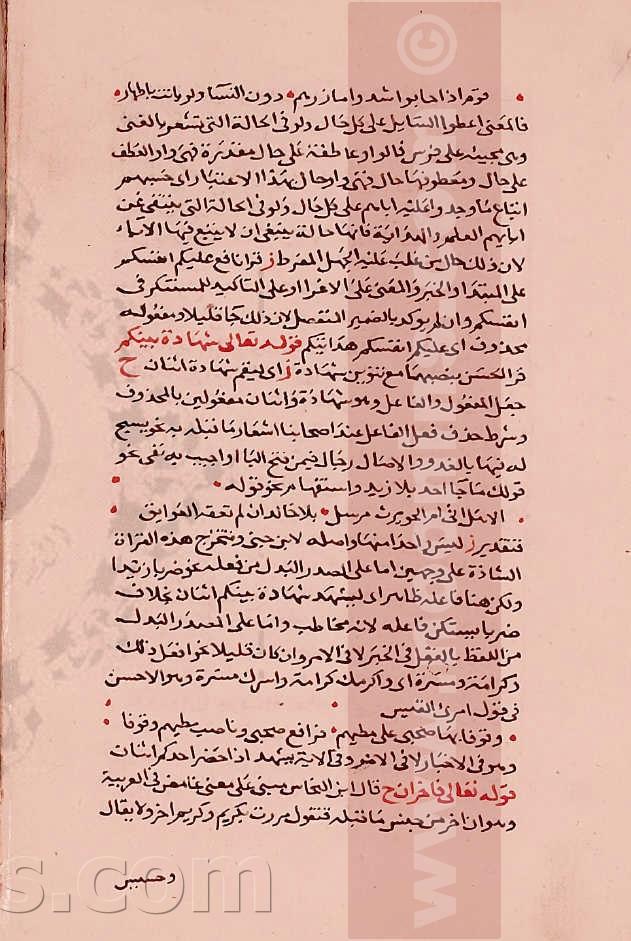 قوم اذا حاربوا شدوا مازرهم دون النسا ولو باتت باطهار
فالمعنى اعطوا السايل على كل حال ولو فى الحالة التى تشعر بالغنى
وهى مجيئه على فرس قالوا وعاطفة على حال مقدرة فهى واو العطف
على حال ومعطوفها حال فهى واو حال بهذا الاعتبار اى حسبهم
اتباع ما وجدوا عليه اباهم على كل حال ولو فى الحالة التى ينتفى عن
ابايهم العلم والهداية فانها حالة ينبغى ان لا يتبع فيها الاباء
لان ذلك حال من غلب عليه الجهل المفرط ز قرا نافع عليكم انفسكم
على المبتدا والخبر والمعنى على الاغرا او على التاكيد للمستتر فى
انفسكم وان لم يوكد بالضمير المنفصل لان ذلك جا قليلا ومفعوله
محذوف اى عليكم انفسكم هدايتكم قوله تعالى شهادة بينكم
قرا الحسن بنصبهما مع تنوين شهادة ز اى ليقم شهادة اثنان ح
جعل المفعول والفاعل وهو شهادة واثنان مفعولين بالمحذوف
وشرط حذف فعل الفاعل عند اصحابنا اشعار ما قبله به نحو يسبح
له فيها بالغدو والاصال رجال فيمن فتح البا او اجيب به نفى نحو
قولك ما جا احد بلا زيد واستفهام نحو قوله
الا هل اتى ام الحويرث مرسل بلا خالد ان لم تعقه العوايق
فتقدير ز ليس واحدا منها واصله لابن جنى وتتخرج هذه القراة
الشاذة على وجهين اما على المصدر البدل من فعله نحو ضربا زيدا
ولكن هنا فاعله ظاهر اى ليشهد شهادة بينكم اثنان بخلاف
ضربا يستكن فاعله لانه مخاطب واما على المصدر البدل
من اللفظ بالفعل فى الخبر لا فى الامر وان كان قليلا نحو افعل ذلك
وكرامة ومسرة اى واكرمك كرامة واسرك مسرة وهو الاحسن
فى قول امرئ القيس
وقوفا بها صحبى على مطيهم فرافع صحبى وناصب مطيهم وقوفا
وهو فى الاخبار لا فى الامر وفى الاية يشهد اذا حضر احدكم اثنان
قوله تعالى فاخران ح قال ابن النحاس مبنى على معنى غامض فى العربية
وهو ان اخر من جنس ما قبله فتقول مررت بكريم وكريم اخر ولا يقال
وخسيس
©
www
s.com